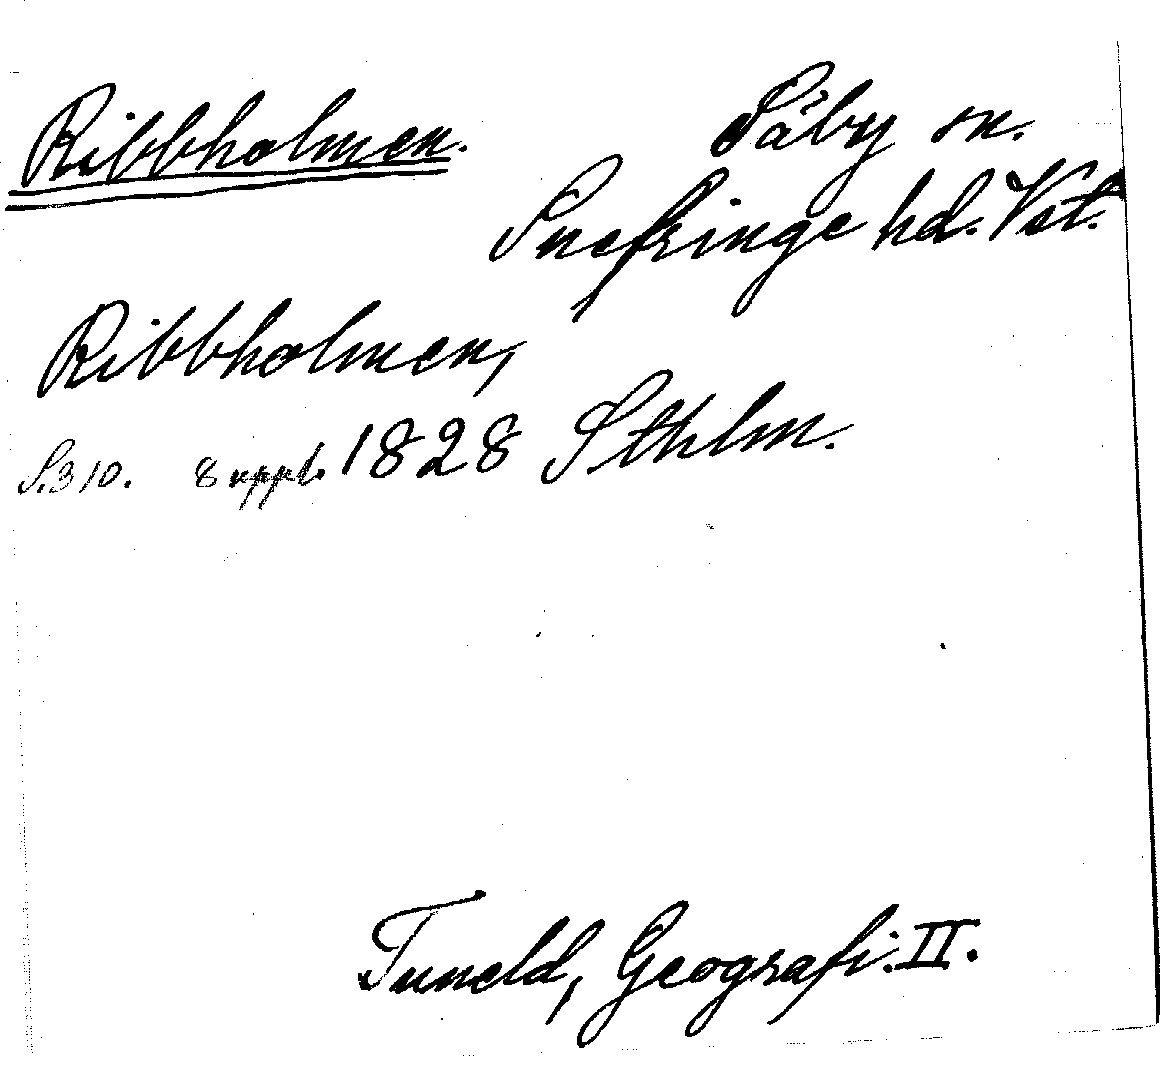 Ribbholmen. Säby sn.
Snefringe hd. Vst.
Ribbholmen,
S. 310. 8 uppl. 1828 Sthlm.
Tuneld, Geografi. II.